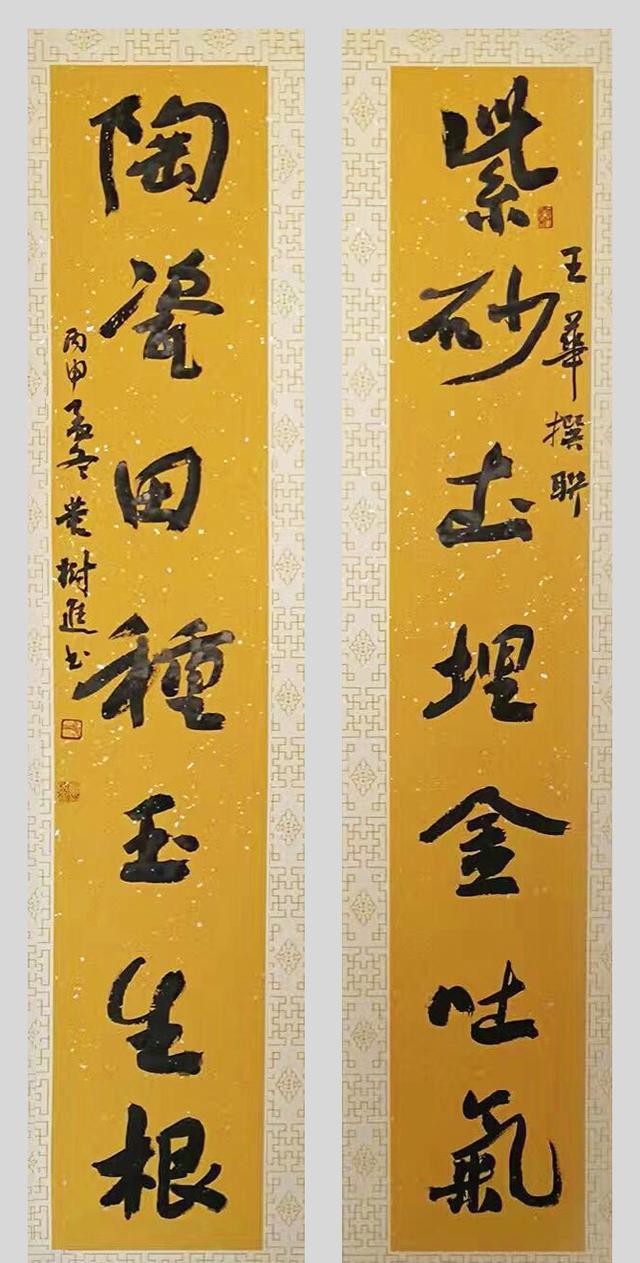 紫砂土埋金吐氣
王華撰聯
陶瓷田種玉生根
丙申孟冬黄樹進书